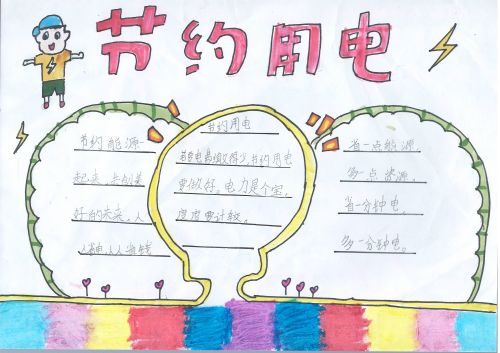 节约用电
节约能源一
起来,共创美
好的未来。人
人省电人人省钱
节约用电
节约用电
要做好。电力是个宝,
度度要计较。
省一点能源,
多一点资源。
省一分钟电,
多一分钟电。